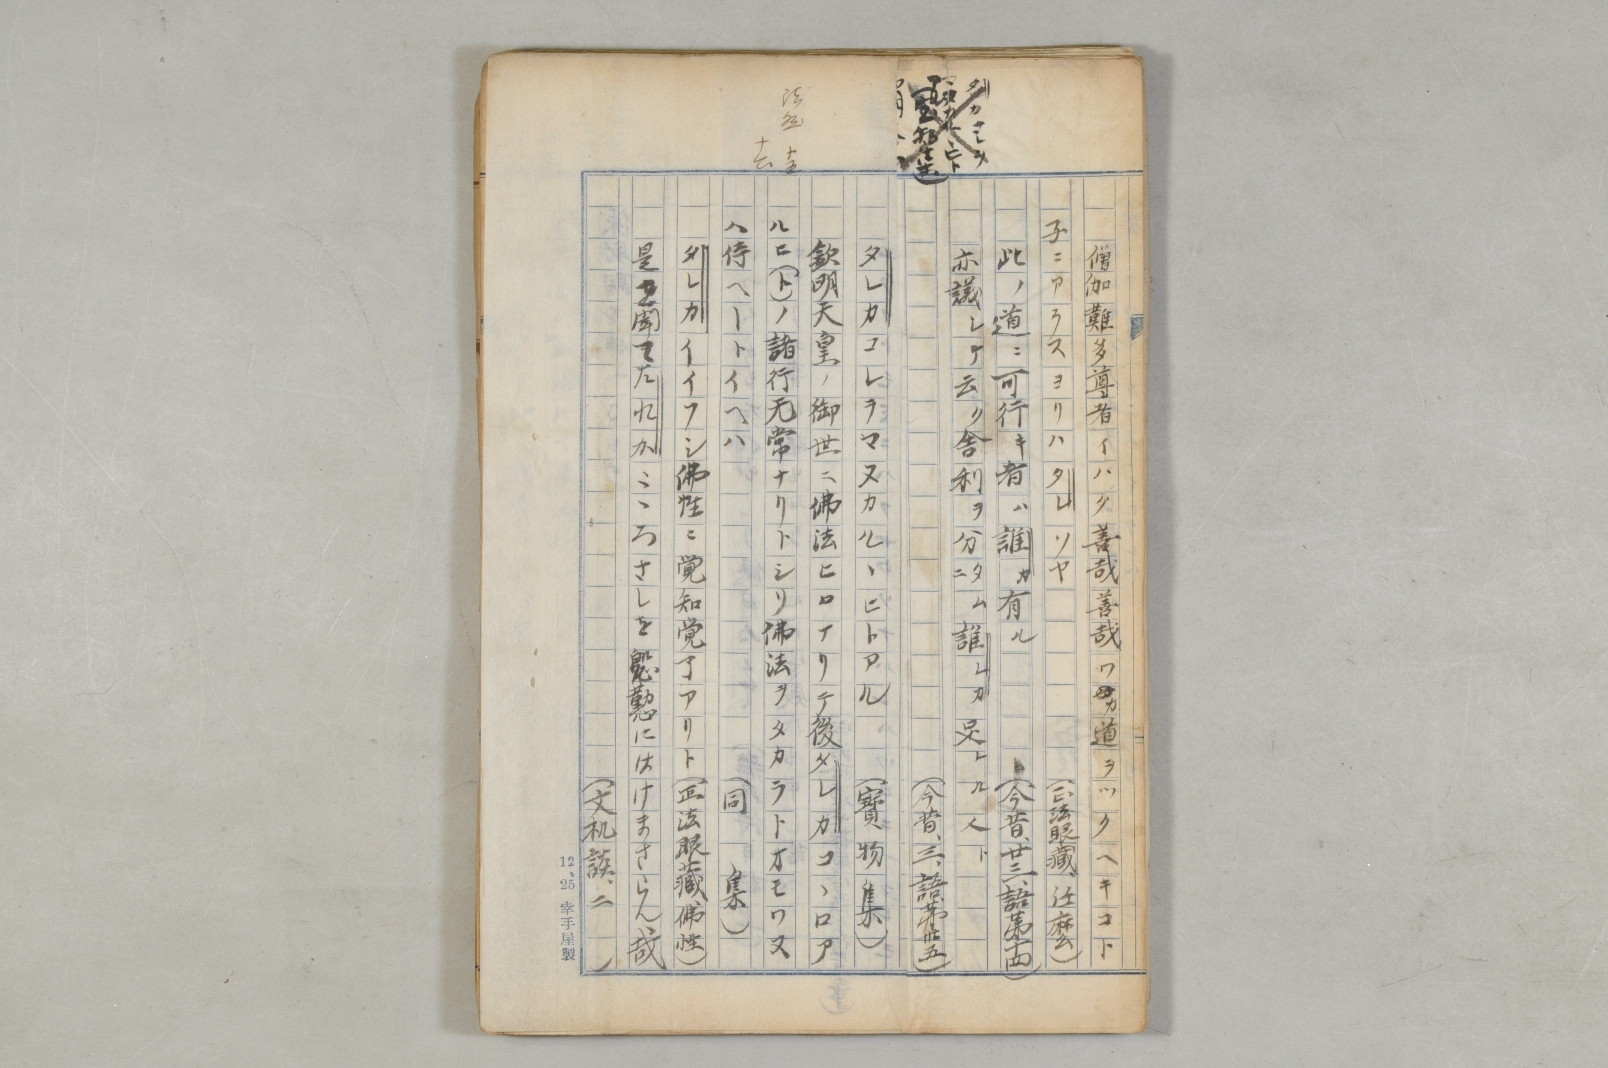 僧伽難多尊者イハク善哉善哉ワカ道ヲツクヘキコト
子ニアラスヨリハタレソヤ
(正法眼藏、恁麼)
此ノ道ニ可行キ者ハ誰カ有ル
(今昔、廿三、語第十四)
亦議シテ云ク舎利ヲ分ニタム誰レカ足レル人ト
(今昔、三、語第卅五)
タレカコレヲマヌカルヽヒトアル
(寶物集)
欽明天皇ノ御世ニ佛法ヒロアリテ後タレカコヽロア
ルヒ(ト)ノ諸行无常ナリトシリ佛法ヲタカラトオモワヌ
ハ侍ヘートイヘハ
(同集)
タレカイイフシ佛性ニ覚知覚了アリト
(正法眼藏、佛性)
是を聞てたれかこゝろさしを慇懃にはけまさらん哉
(文机談、二)
12、25 幸手屋製